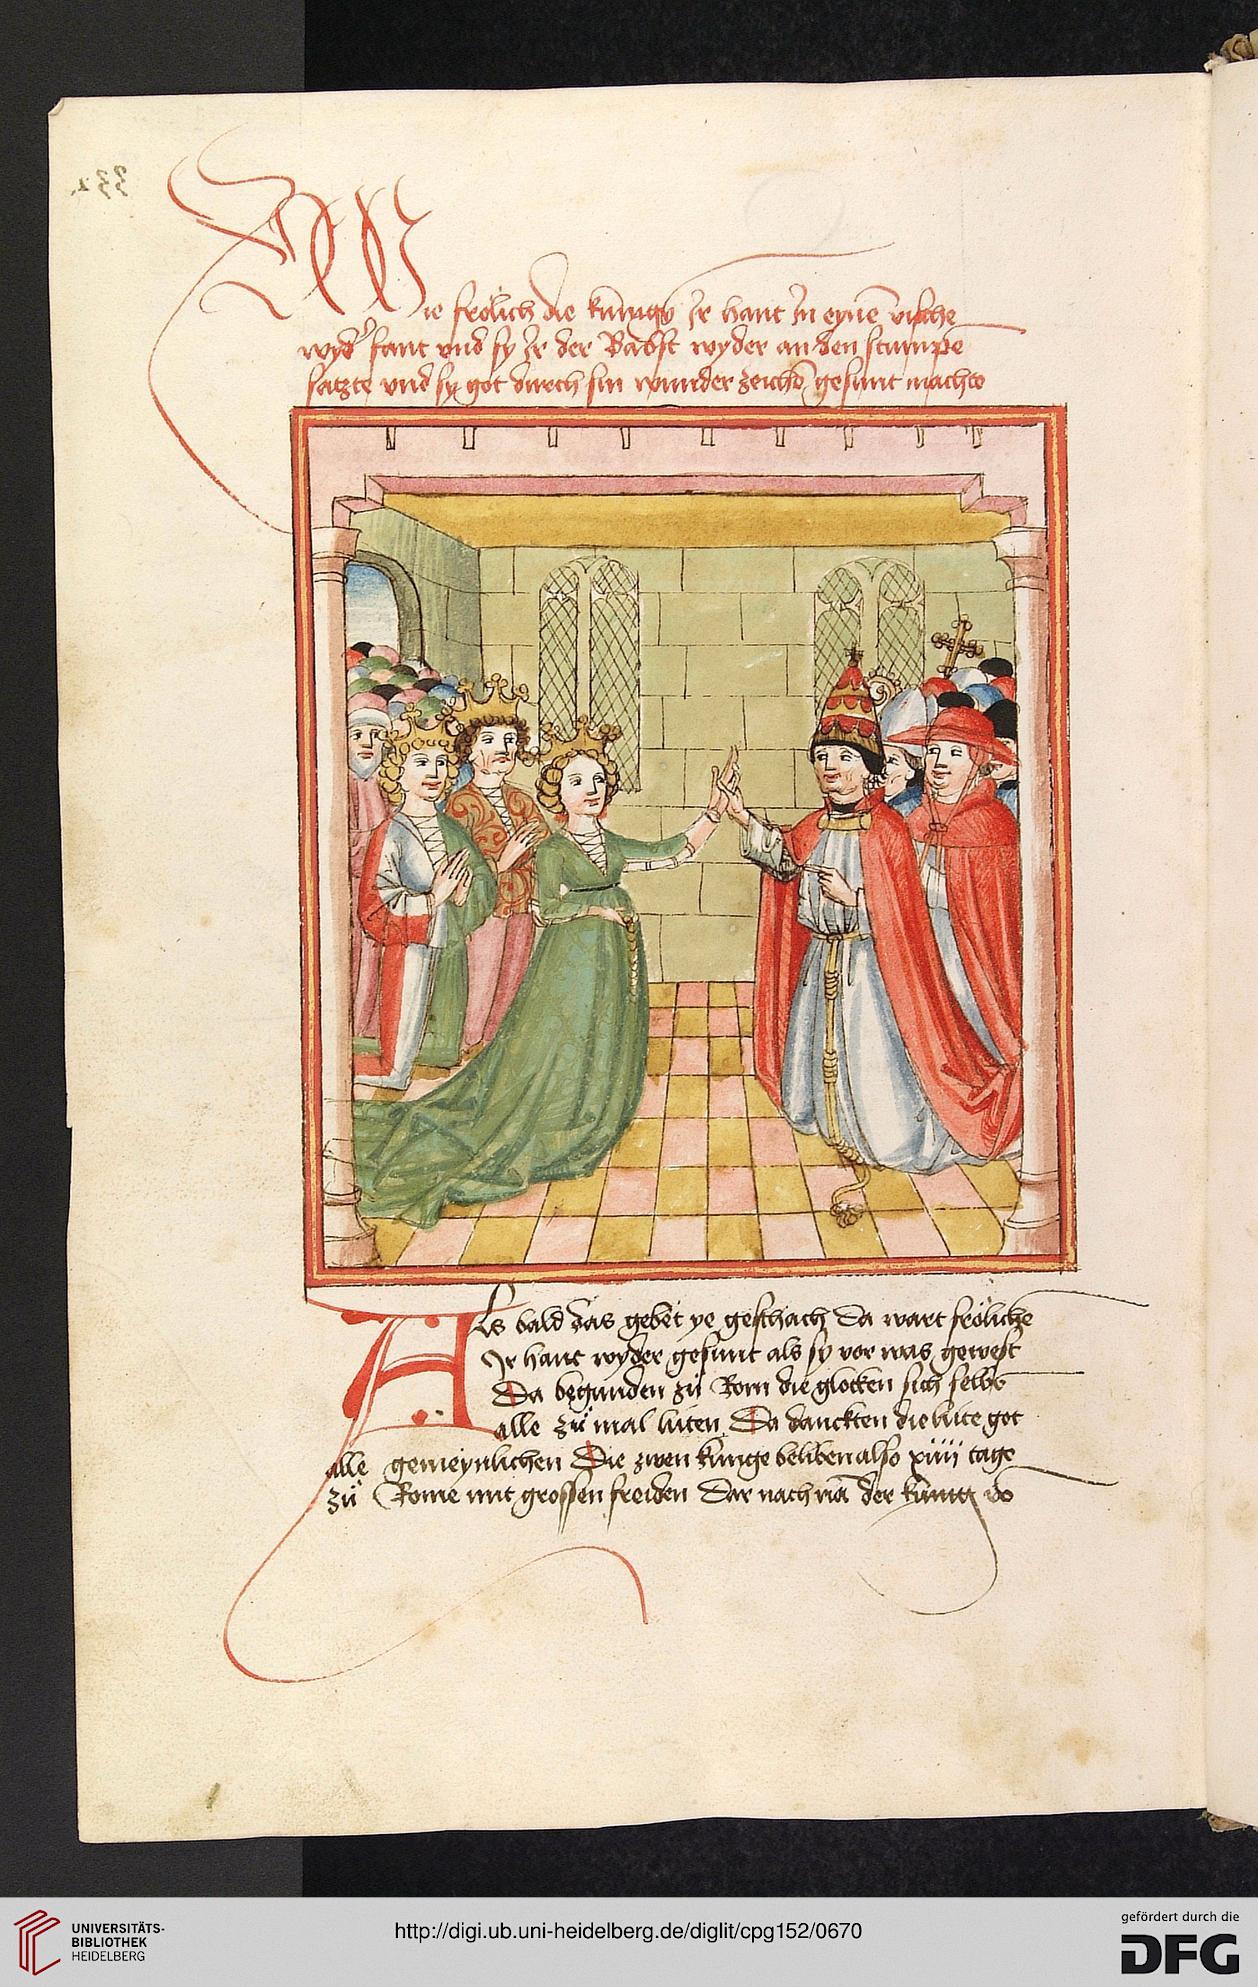 Wie frölich die kunigȳ Ir hant In eynē vische
wyd' fant vnd sy Ir der Babst wyder an den stumpe
satzte vnd sy got durch sin wunder zeichē gesunt machte
Als bald das gebet ye geschach Da wart fröliche
Ir hant wyder gesunt als sy vor was gewest
Da begunden zü Rom die glocken sich selbs
alle zü mal lüten Da danckten die lüte got
alle gemeynlichen Die zwen kunge beliben also xiiii tage
zü Rome mit grossen freiden Dar nach nā der kunig vō
UNIVERSITÄTS-
BIBLIOTHEK
HEIDELBERG
http://digi.ub.uni-heidelberg.de/diglit/cpg152/0670
gefördert durch die
DFG